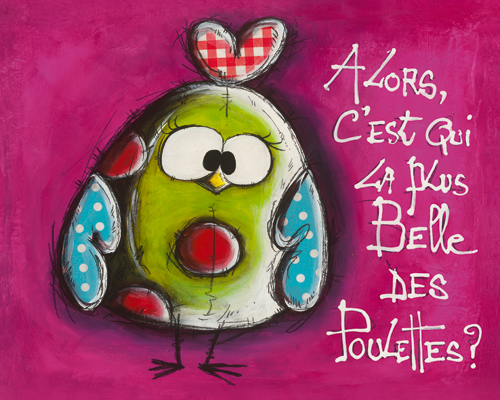 ALORS,
C'EST QUI
LA PLUS
BELLE
DES
POULETTES?